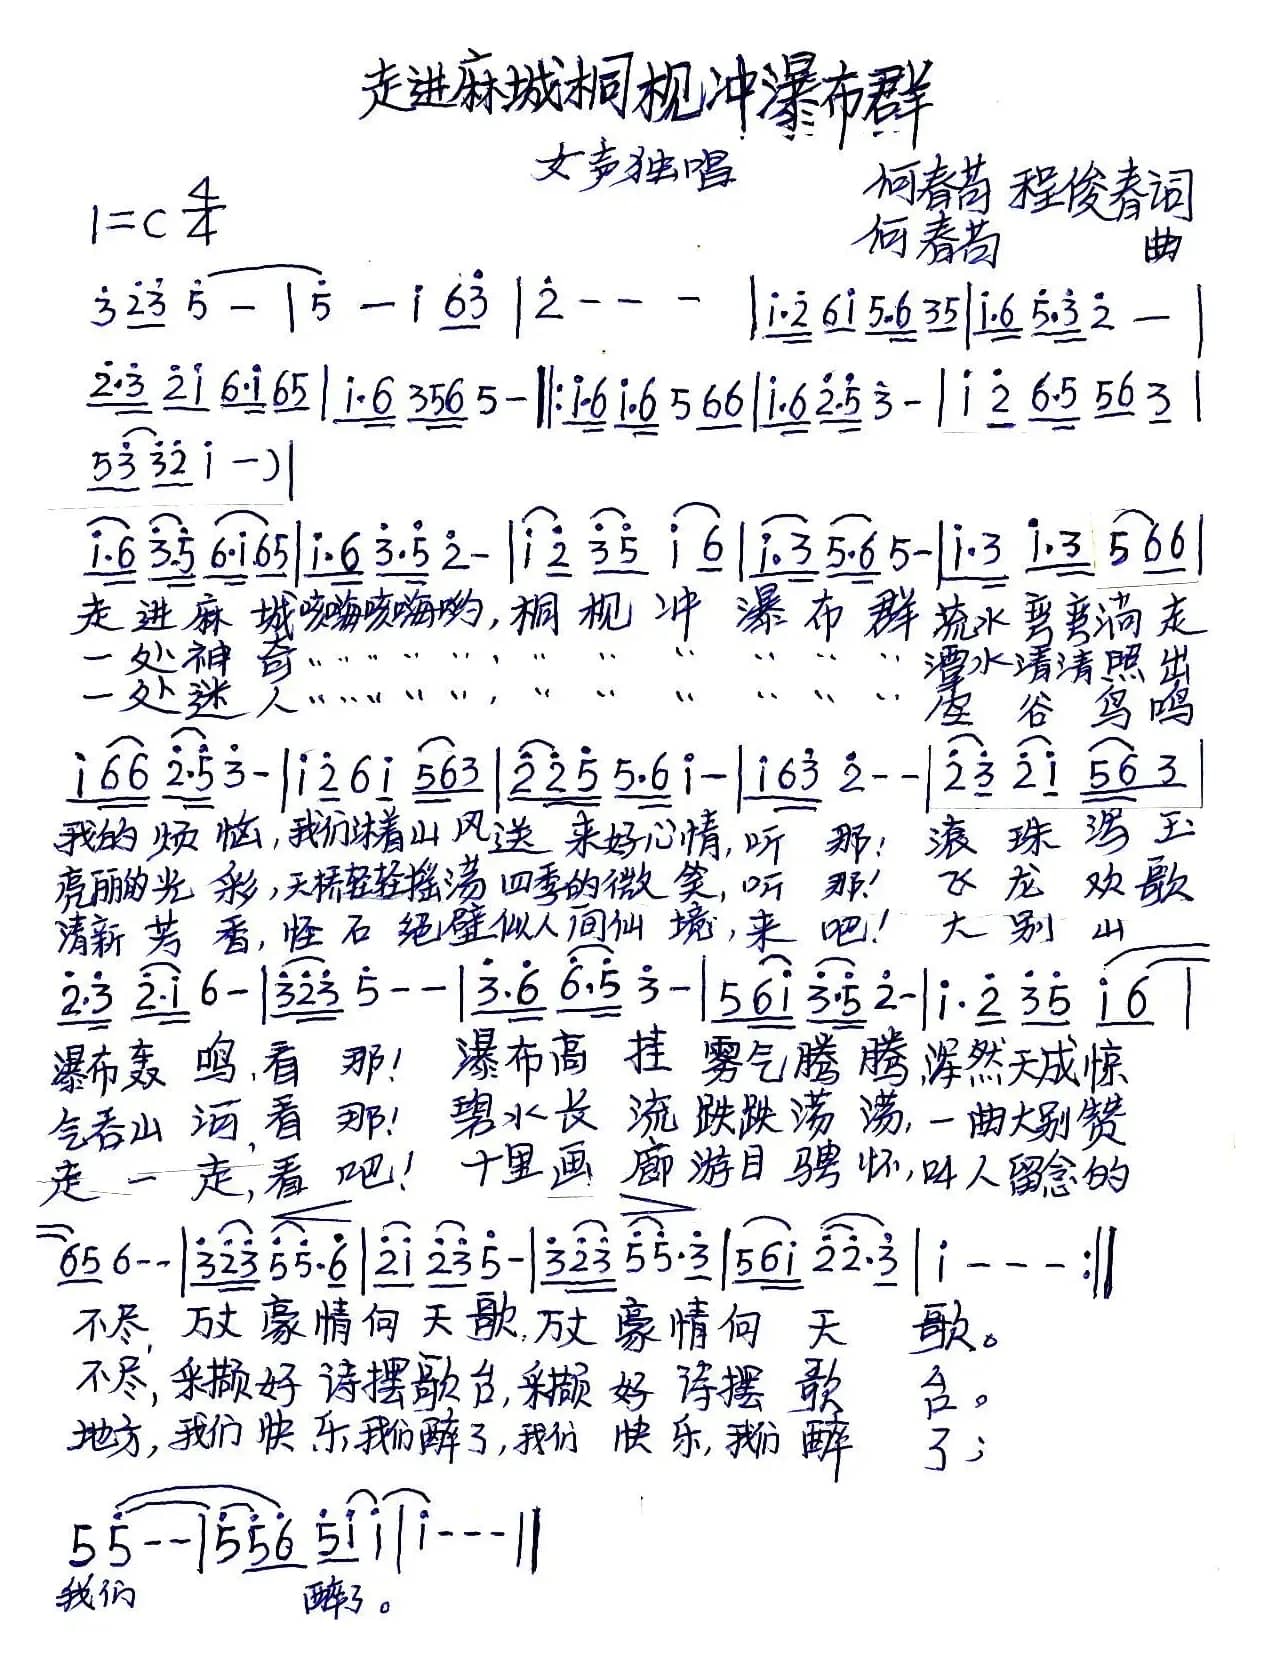 走进麻城桐枧冲瀑布群
女声独唱
何春苟 程俊春词
1=C 4/4
何春苟 曲
3 23 5 - | 5 - i 63 | 2 - - - | i·2 6i 5·6 35 | i·6 5·3 2 - |
2·3 2i 6·i 65 | i·6 356 5 - ‖: i·6 i·6 5 66 | i·6 2·5 3 - | i 2 6·5 56 3 |
53 32 i - ) |
i·6 3·5 6·i 65 | i·6 3·5 2 - | i 2 35 i 6 | i·3 5·6 5 - | i·3 i·3 5 66 |
走进麻城咳嗨咳嗨哟,桐枧冲瀑布群 流水弯弯淌走
一处神奇〃〃〃〃〃,〃〃〃〃〃〃 潭水清清照出
一处迷人〃〃〃〃〃,〃〃〃〃〃〃 空谷鸟鸣
i 66 2·5 3 - | i 2 6 i 563 | 2 2 5 5·6 i - | i 63 2 - - | 2 3 2 i 56 3 |
我的烦恼,我们沐着山风送来好心情,听那!滚珠泻玉
亮丽的光彩,天桥轻轻摇荡四季的微笑,听那!飞龙欢歌
清新芳香,怪石绝壁似人间仙境,来吧!大别山
2·3 2·i 6 - | 323 5 - - | 3·6 6·5 3 - | 5 6i 3·5 2 - | i·2 35 i 6 |
瀑布轰鸣,看那!瀑布高挂雾气腾腾,浑然天成惊
气吞山河,看那!碧水长流跌跌荡荡,一曲大别赞
走一走,看吧!十里画廊游目骋怀,叫人留念的
65 6 - - | 323 55·6 | 2i 23 5 - | 323 55·3 | 56i 22·3 | i - - - :‖
不尽,万丈豪情向天歌,万丈豪情向天歌。
不尽,采撷好诗摆歌台,采撷好诗摆歌台。
地方,我们快乐我们醉了,我们快乐,我们醉了;
5 5 - - | 5 56 5i i | i - - - ‖
我们 醉了。